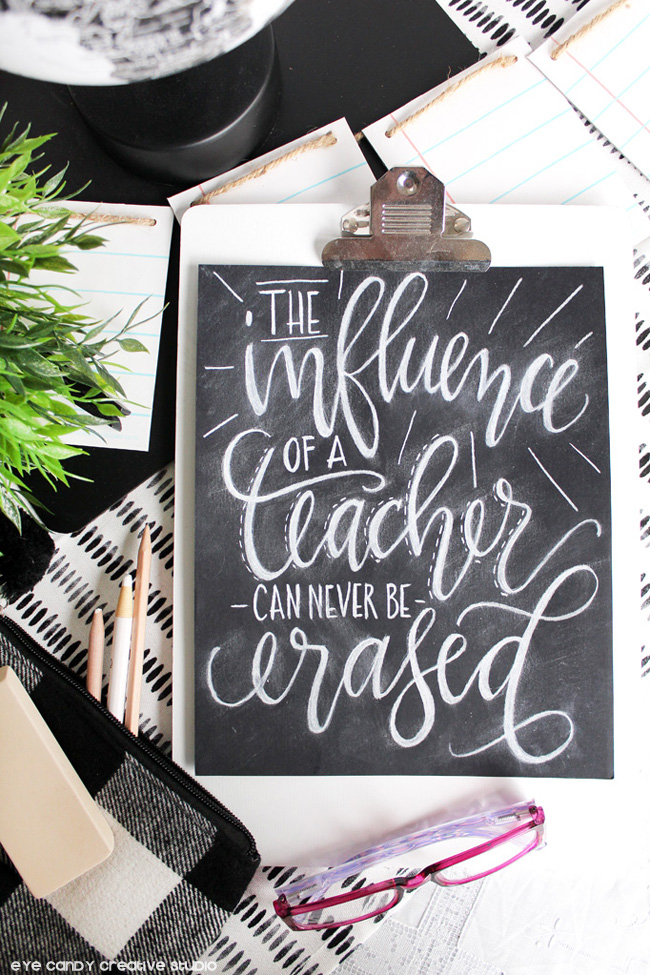 THE
influence
OF A
teacher
- CAN NEVER BE -
erased
eye candy creative studio